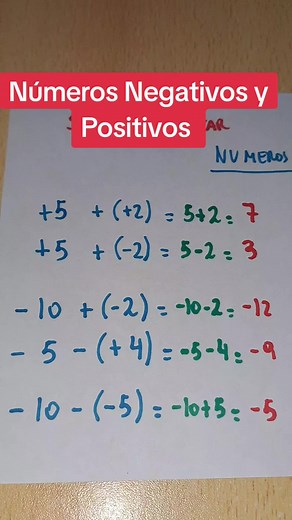 Números Negativos y
Positivos
AR
NUMEROS
+5 + (+2) = 5+2= 7
+5 + (-2) = 5-2= 3
-10 + (-2) = -10-2= -12
- 5 - (+4) = -5-4= -9
-10 - (-5) = -10+5= -5